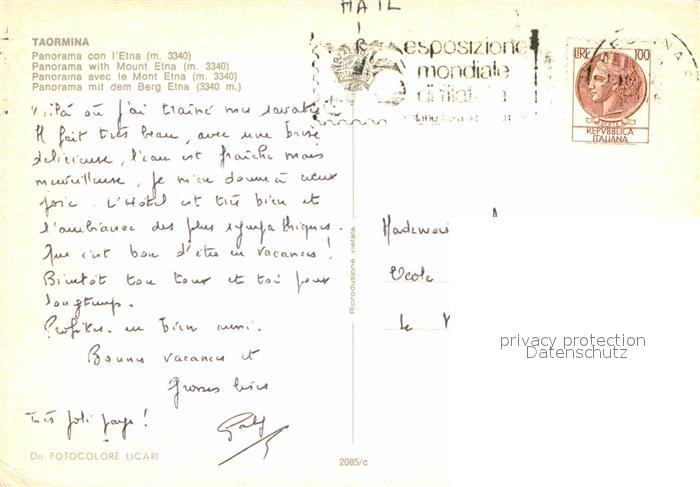 MAIL
TAORMINA
Panorama con l'Etna (m. 3340)
Panorama with Mount Etna (m. 3340)
Panorama avec le Mont Etna (m. 3340)
Panorama mit dem Berg Etna (3340 m.)
esposizione
mondiale
di filatelia
LIRE 100
POSTE
REPVBBLICA
ITALIANA
Voilà où j'ai traîné mes savates
Il fait très beau, avec une brise
délicieuse, l'eau est fraîche mais
merveilleuse, je m'en donne à cœur
joie. L'Hôtel est très bien et
l'ambiance des plus sympathiques.
Que c'est bon d'être en vacances!
Bientôt ton tour et toi pour
longtemps.
Profites-en bien aussi.
Bonnes vacances et
Grosses bises
Très joli pays!
Riproduzione vietata
Mademoi
Ecole
Le
privacy protection
Datenschutz
Dn. FOTOCOLORE LICARI
2085/c